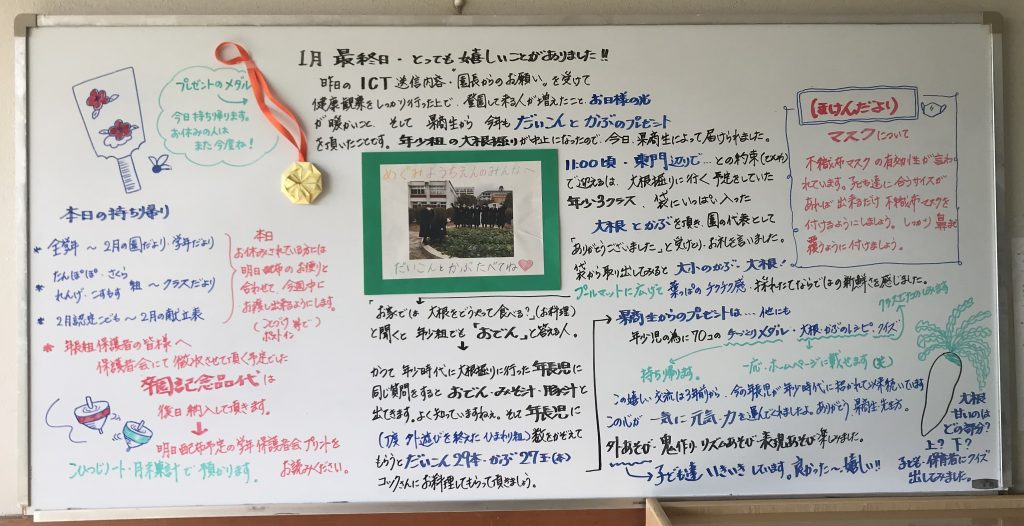 1月 最終日・とっても嬉しいことがありました!!
昨日の ICT 送信内容・"園長からのお願い"を受けて
健康観察をしっかり行った上で、登園して来る人が増えたこと、お日様の光
が暖かいこと、そして 果商生から 今年も だいこんとかぶのプレゼント
を頂いたことです。年少組の大根掘りが中止になったので、今日、果商生によって届けられました。
11:00頃・東門辺りで…との約束
で迎えるは、大根掘りに行く予定をしていた
年少3クラス、袋にいっぱい入った
大根とかぶを頂き、園の代表として
「ありがとうございました」と受けとり・お礼を言いました。
袋から取り出してみると 大小のかぶ・大根!!
プールマットに広げて 葉っぱのチクチク感・採れたてならではの新鮮さを感じました。
めぐみようちえんのみんなへ
だいこんとかぶたべてね
「お家では 大根をどうやって食べる?」(お料理)
と聞くと 年少組でも「おでん」と答える人。
かつて 年少時代に大根掘りに行った 年長児に
同じ質問をすると おでん・みそ汁・豚汁と
出てきます。よく知っていますねぇ。そこで年長児に
(丁度 外遊びを終えた ひまわり組)数をかぞえて
もらうと だいこん29本・かぶ27玉(個)
コックさんにお料理してもらって頂きましょう。
果商生からのプレゼントは…他にも
年少児の為に70コの 手づくりメダル・大根・かぶのレシピ・クイズ
クラスだよりのせます
持ち帰ります。
一応・ホームページに載せます
この嬉しい交流は3年前から、今の年長児が年少時代に招かれて以来続いています
この心が 一気に 元気・力を運んでくれますよ。ありがとう 果商生・先生方。
外あそび・鬼作り・リズムあそび・表現あそび楽しみました。
子ども達 いきいきしています。良かった〜嬉しい!!
プレゼントのメダル
今日持ち帰ります。
お休みの人は
また今度ね!
本日の持ち帰り
* 全学年 〜 2月の園だより・学年だより
たんぽぽ・さくら
れんげ・こすもす 組 〜 クラスだより
* 2月認定こども 〜 2月の献立表
本日
お休みされている方には
明日配布のお便りと
合わせて 今週中に
お渡し出来るようにします。
* 年長組保護者の皆様へ
保護者会にて徴収させて頂く予定でした
卒園記念品代は
後日納入して頂きます。
明日配布予定の学年保護者会プリントを
お読みください。
こひつじノート・月末累計で預かります。
(ほけんだより)
マスクについて
不織布マスクの有効性が言わ
れています。子ども達に合うサイズが
あれば 出来るだけ 不織布マスクを
付けるようにしましょう。しっかり 鼻まで
覆うように付けましょう。
大根
甘いのは
どの部分?
上?下?
子ども・保育者にクイズ
出してみました。